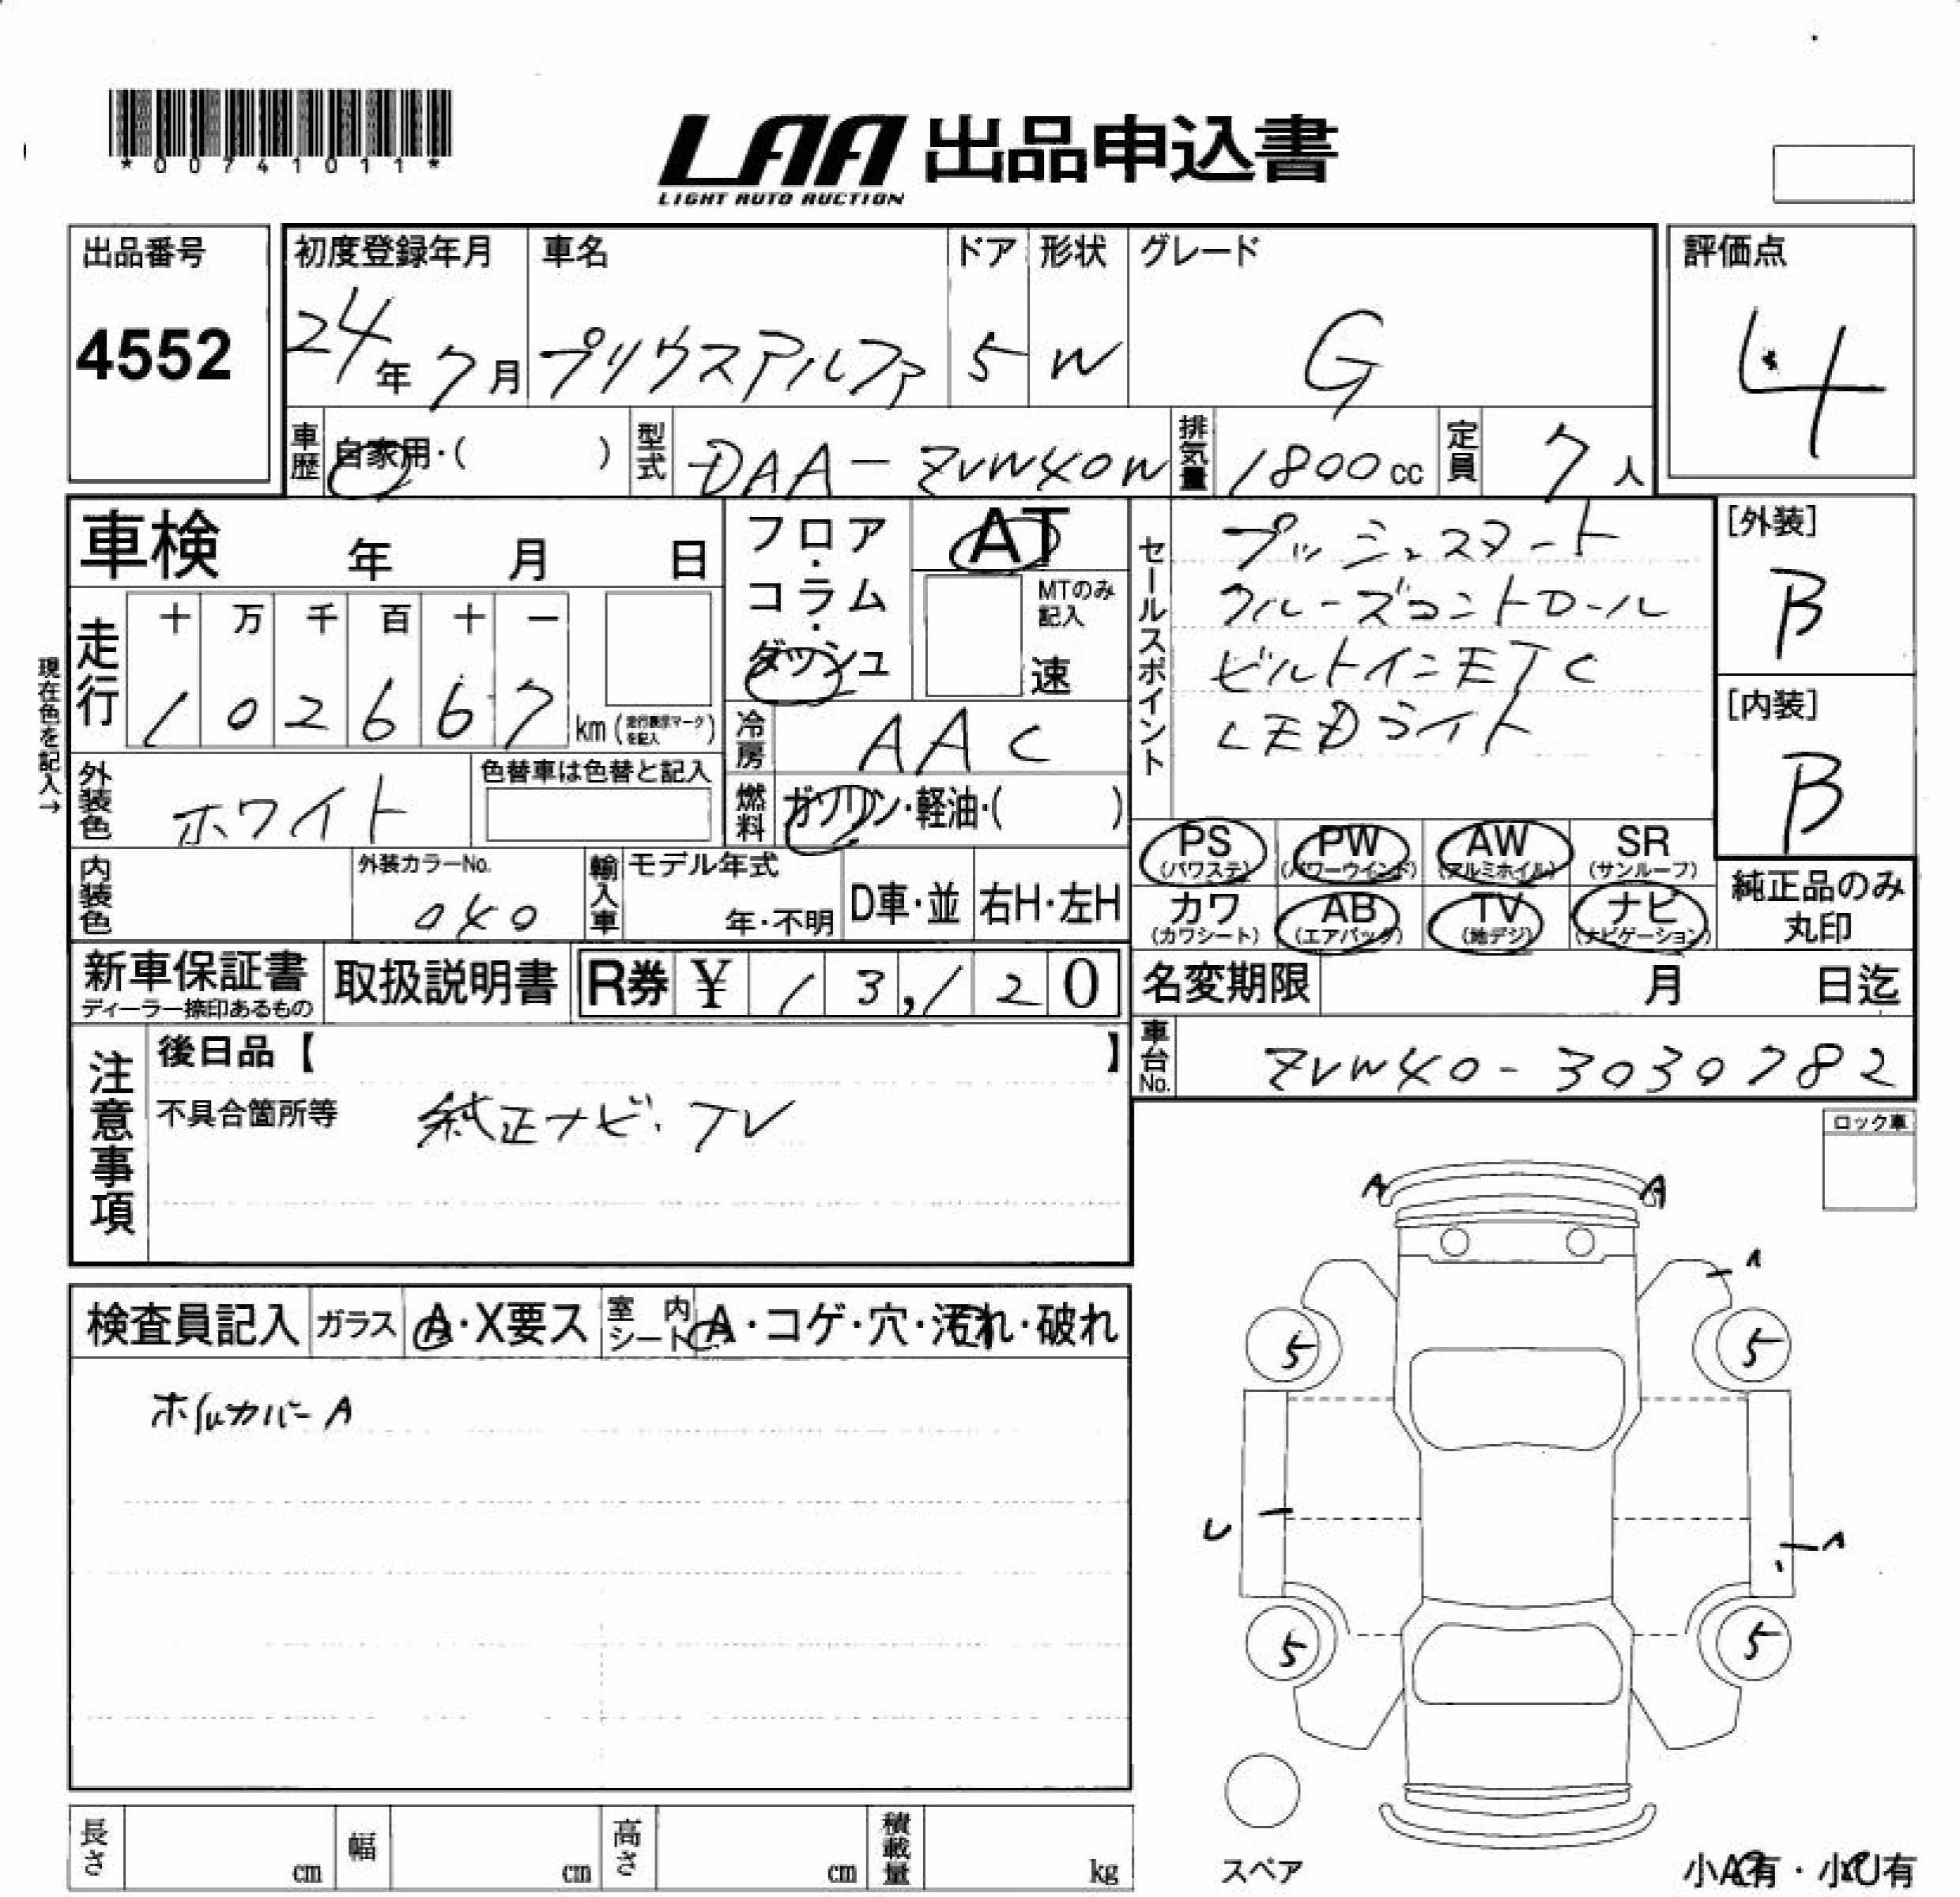 *00741011*
LAA 出品申込書
LIGHT AUTO AUCTION
出品番号
4552
初度登録年月
24年7月
車名
プリウスアルファ
ドア
5
形状
W
グレード
G
評価点
4
車歴 自家用・( )
型式 DAA-ZVW40W
排気量 1800cc
定員 7人
車検 年 月 日
走行
十 万 千 百 十 一
1 0 2 6 6 7 km (走行表示マークを記入)
現在色を記入→
外装色 ホワイト
色替車は色替と記入
内装色
外装カラーNo.
040
輸入車
モデル年式
年・不明
D車・並
右H・左H
フロア・コラム・ダッシュ
AT
MTのみ記入
速
冷房 AAC
燃料 ガソリン・軽油・( )
セールスポイント
プッシュスタート
クルーズコントロール
ビルトインETC
LEDライト
[外装]
B
[内装]
B
PS (パワステ)
PW (パワーウインド)
AW (アルミホイル)
SR (サンルーフ)
カワ (カワシート)
AB (エアバック)
TV (地デジ)
ナビ (ナビゲーション)
純正品のみ丸印
新車保証書
ディーラー捺印あるもの
取扱説明書
R券 ¥ 13,120
名変期限 月 日迄
車台No. ZVW40-3030782
注意事項
後日品【 】
不具合箇所等 純正ナビ・TV
ロック車
検査員記入
ガラス A・X要ス
室内シート A・コゲ・穴・汚れ・破れ
ホイルカバーA
A A
A
5 5
U A
5 5
スペア
小A有・小U有
長さ cm
幅 cm
高さ cm
積載量 kg